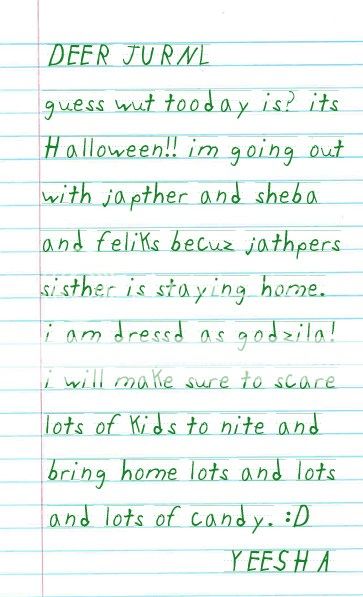 DEER JURNL
guess wut tooday is? its
Halloween!! im going out
with japther and sheba
and feliks becuz jathpers
sisther is staying home.
i am dressd as godzila!
i will make sure to scare
lots of kids to nite and
bring home lots and lots
and lots of candy. :D
YEESHA